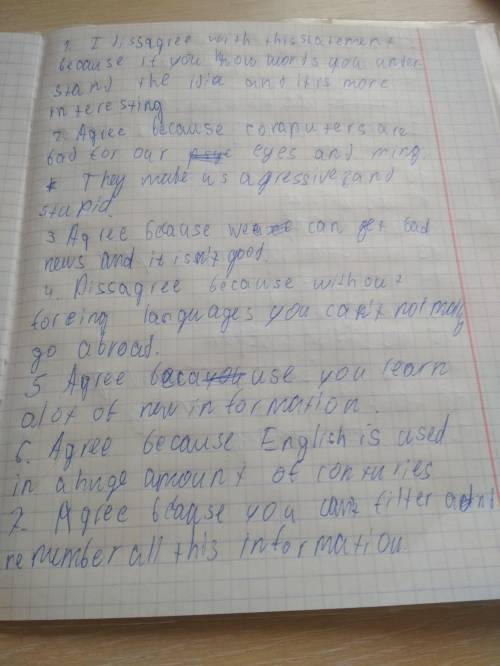 1. I dissagree with this statement
because if you know words you under
stand the idia and it is more
interesting
2. Agree because computers are
bad for our eyes and ming.
They make us agressive and
stupid.
3 Agree bcause we can get bad
news and it isn't good.
4. Dissagree because withou
foreing languages you can't normaly
go abroad.
5 Agree because you learn
alot of new information.
6. Agree because English is used
in a huge amount of conturies
7. Agree bcause you can't filter and
remember all this information